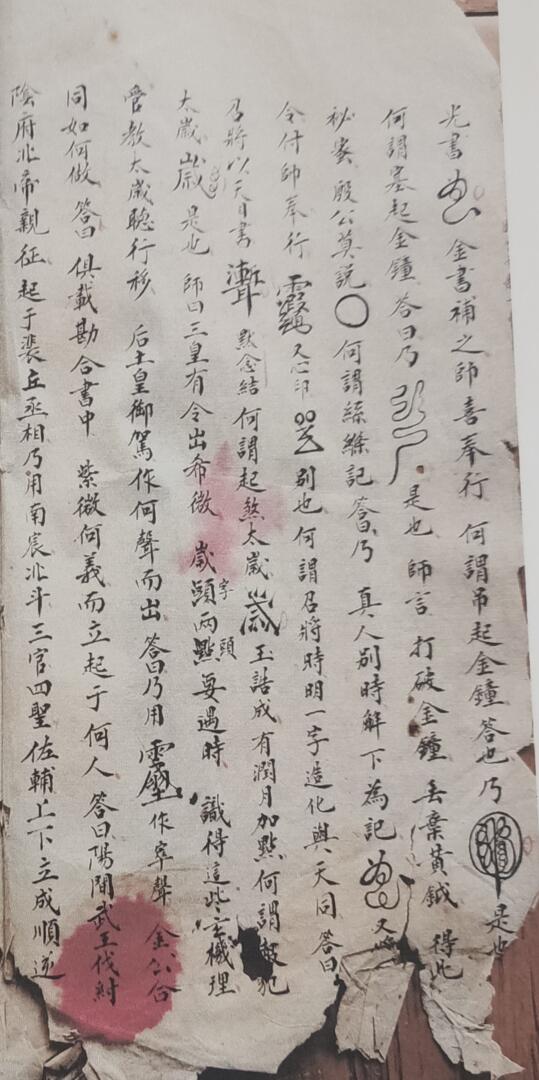 光書 金書補之師喜奉行 何謂吊起金鐘答也乃 是也
何謂墓起金鐘答曰乃 是也 師言 打破金鐘 丢棄黃鉞 得此
秘密殷公莫説〇何謂絲縧記答曰乃 真人別時解下為記 又
令付師奉行 又心印 別也何謂召將時明一字造化與天同答曰
召將以天目書 默念結何謂起煞太歲 玉誥成有潤月加點何謂 犯
太歲歲是也 師曰三皇有令出希微 歲頭字兩點頭要遇時 識得這些玄機理
管教太歲聽行移 后土皇御駕作何聲而出 答曰乃用 作宰聲 金公合
同如何做 答曰 俱載勘合書中 紫微何義而立起于何人 答曰陽間武王伐紂
陰府北帝親征起于裴丘丞相乃用南宸北斗三官四聖佐輔上下立成順逆